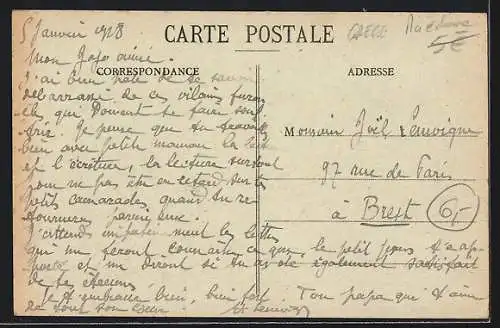 5 Janvier 1928
CARTE POSTALE
Mon Jojo aimé.
CORRESPONDANCE
ADRESSE
J'ai bien hâte de te savoir
débarrassé de ces vilains furon-
cles qui doivent te faire souf-
frir. Je pense que tu travailles
bien avec petite maman le
et l'écriture, la lecture surtout
pour ne pas être en retard sur tes
petits camarades quand tu re-
tourneras parmi eux.
J'attends impatiemment les lettres
qui me feront connaître ce que le petit Jésus t'a ap-
porté et me diront si tu as été également satisfait
de tes étrennes.
Je t'embrasse bien, bien fort
de tout mon cœur.
Ton papa qui t'aime
Monsieur Joël Lenvigne
97 rue de Paris
à Brest
6,-
5€